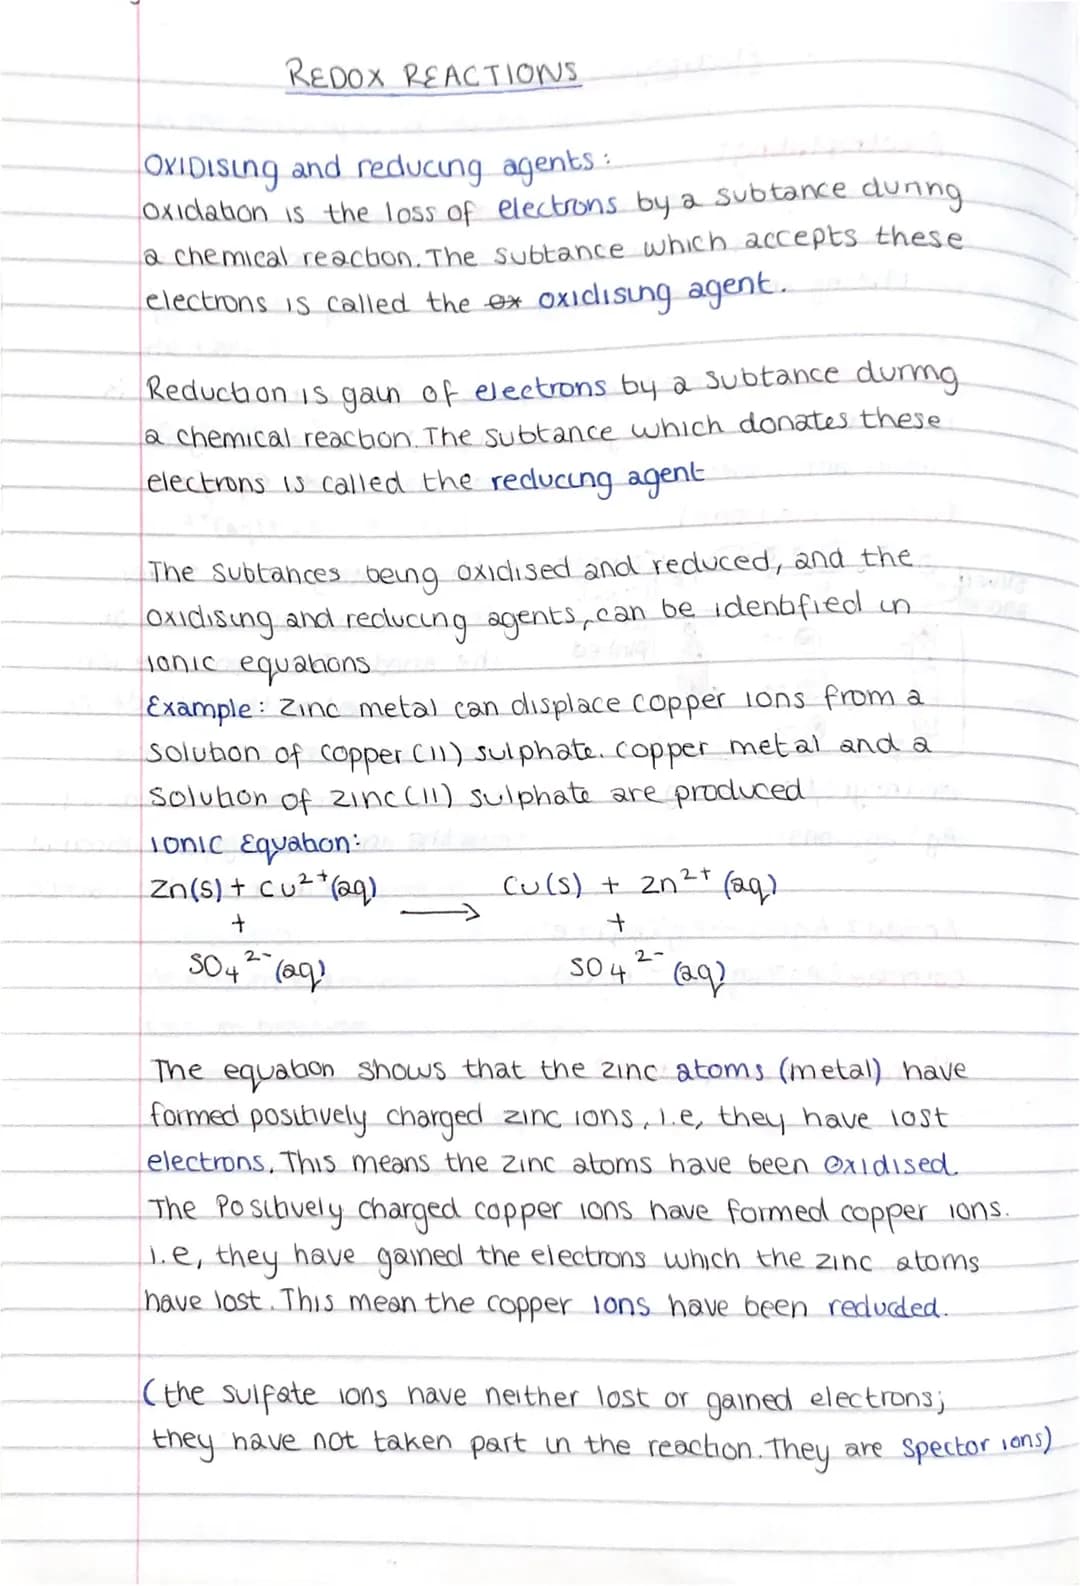 REDOX REACTIONS
OXIDISING and reducing agents:
Oxidation is the loss of electrons by a subtance during
a chemical reaction. The subtance which accepts these
electrons is called the ox oxidising agent.
Reduction is gain of electrons by a subtance during
a chemical reaction. The subtance which donates these
electrons is called the reducing agent
The subtances being oxidised and reduced, and the
oxidising and reducing agents, can be identified in
ionic equations
Example: Zinc metal can displace copper ions from a
solution of copper (II) sulphate. copper metal and a
solution of zinc (II) sulphate are produced
IONIC Equation:
Zn(s) + Cu²⁺(aq) ⟶ Cu(s) + Zn²⁺ (aq)
+ +
SO₄²⁻(aq) SO₄²⁻ (aq)
The equation shows that the zinc atoms (metal) have
formed positively charged zinc ions, i.e, they have lost
electrons. This means the zinc atoms have been oxidised
The Positively charged copper ions have formed copper ions.
i.e, they have gained the electrons which the zinc atoms
have lost. This mean the copper ions have been reducded.
(the sulfate ions have neither lost or gained electrons;
they have not taken part in the reaction. They are spector ions)